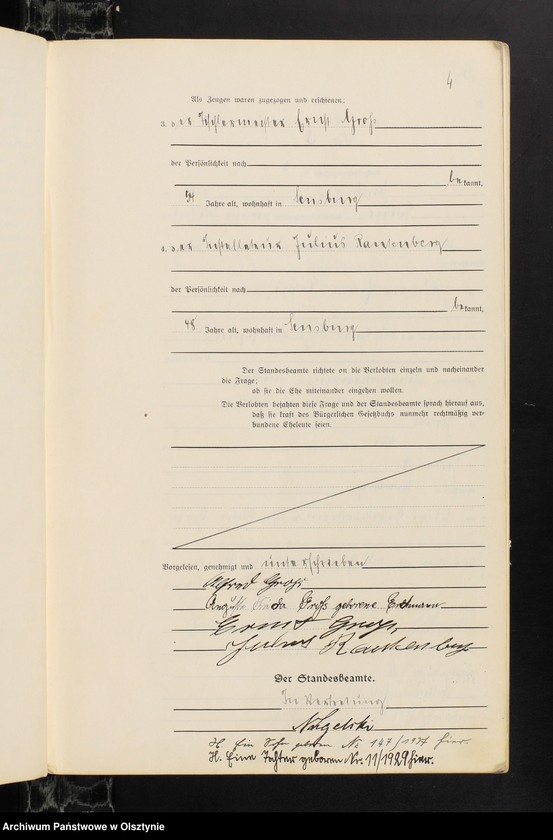 4
Als Zeugen waren zugezogen und erschienen:
3. der Tischlermeister Ernst Groß
der Persönlichkeit nach
bekannt,
54 Jahre alt, wohnhaft in Sensburg
4. der Installateur Julius Rautenberg
der Persönlichkeit nach
bekannt,
48 Jahre alt, wohnhaft in Sensburg
Der Standesbeamte richtete an die Verlobten einzeln und nacheinander
die Frage:
ob sie die Ehe miteinander eingehen wollen.
Die Verlobten bejahten diese Frage und der Standesbeamte sprach hierauf aus,
daß sie kraft des Bürgerlichen Gesetzbuchs nunmehr rechtmäßig ver-
bundene Eheleute seien.
Vorgelesen, genehmigt und unterschrieben
Alfred Groß
Auguste Groß geborene
Ernst Gross
Julius Rautenberg
Der Standesbeamte.
In Vertretung
H. Ein Sohn geboren No 147/1927 hier.
H. Eine Tochter geboren Nr. 11/1929 hier.
Archiwum Państwowe w Olsztynie